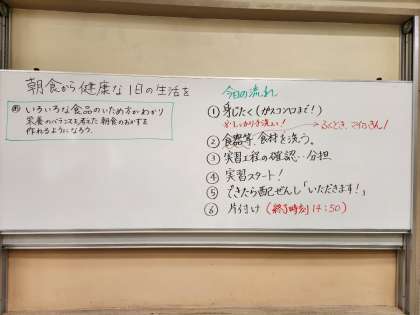 朝食から健康な1日の生活を
め いろいろな食品のいため方がわかり
栄養のバランスを考えた朝食のおかずを
作れるようになろう。
今日の流れ
① 身じたく(ガスコンロまで!)
※しっかり手洗い! → ふくとき、マイふきん!
② 食器等、食材を洗う。
③ 実習工程の確認・分担
④ 実習スタート!
⑤ できたら配ぜんし「いただきます!」
⑥ 片付け (終了時刻 14:50)